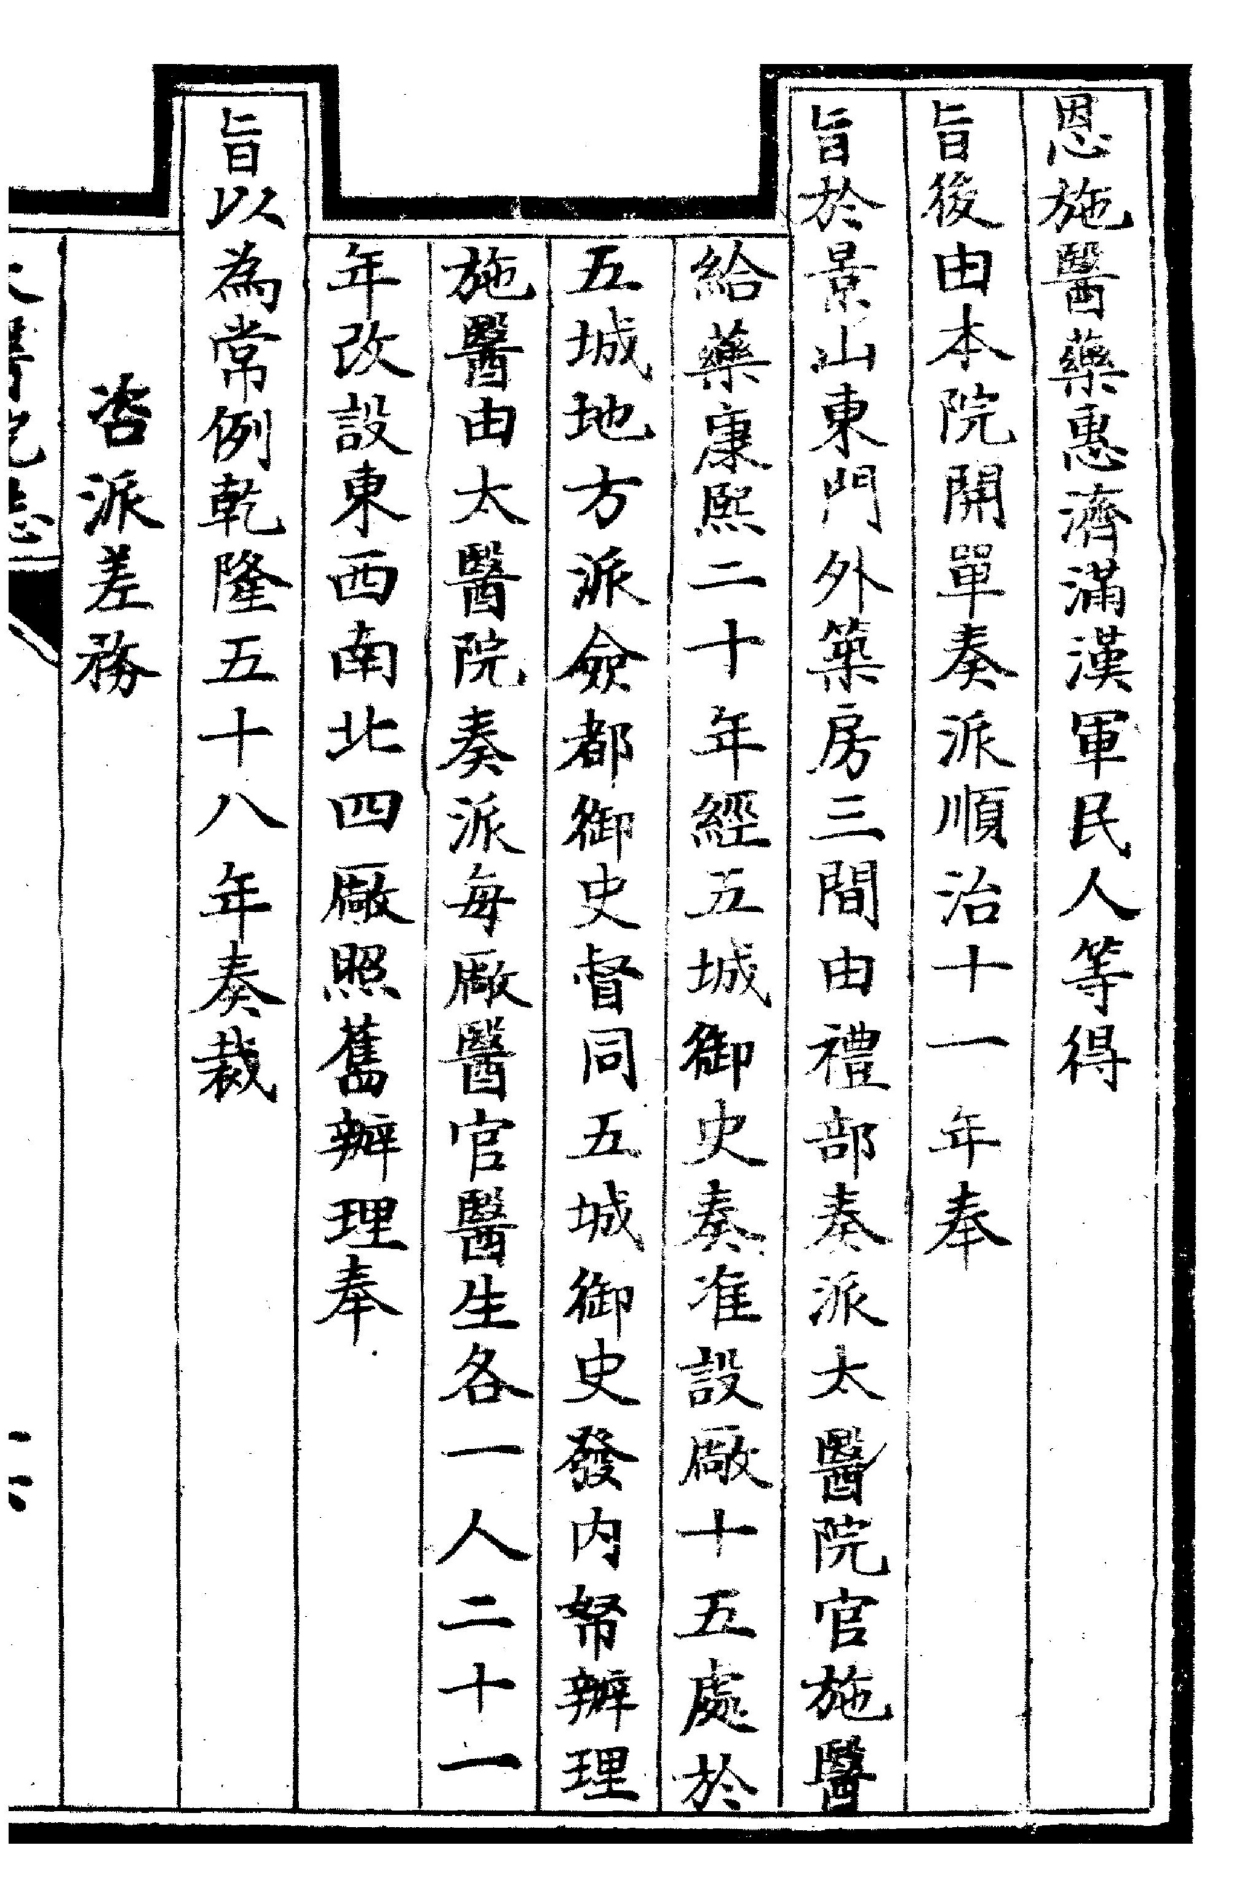 恩施醫藥惠濟滿漢軍民人等得
旨後由本院開單奏派順治十一年奉
旨於景山東門外築房三間由禮部奏派太醫院官施醫
給藥康熙二十年經五城御史奏准設廠十五處於
五城地方派僉都御史督同五城御史發内帑辦理
施醫由太醫院奏派每廠醫官醫生各一人二十一
年改設東西南北四廠照舊辦理奉
旨以為常例乾隆五十八年奏裁
咨派差務
醫院志